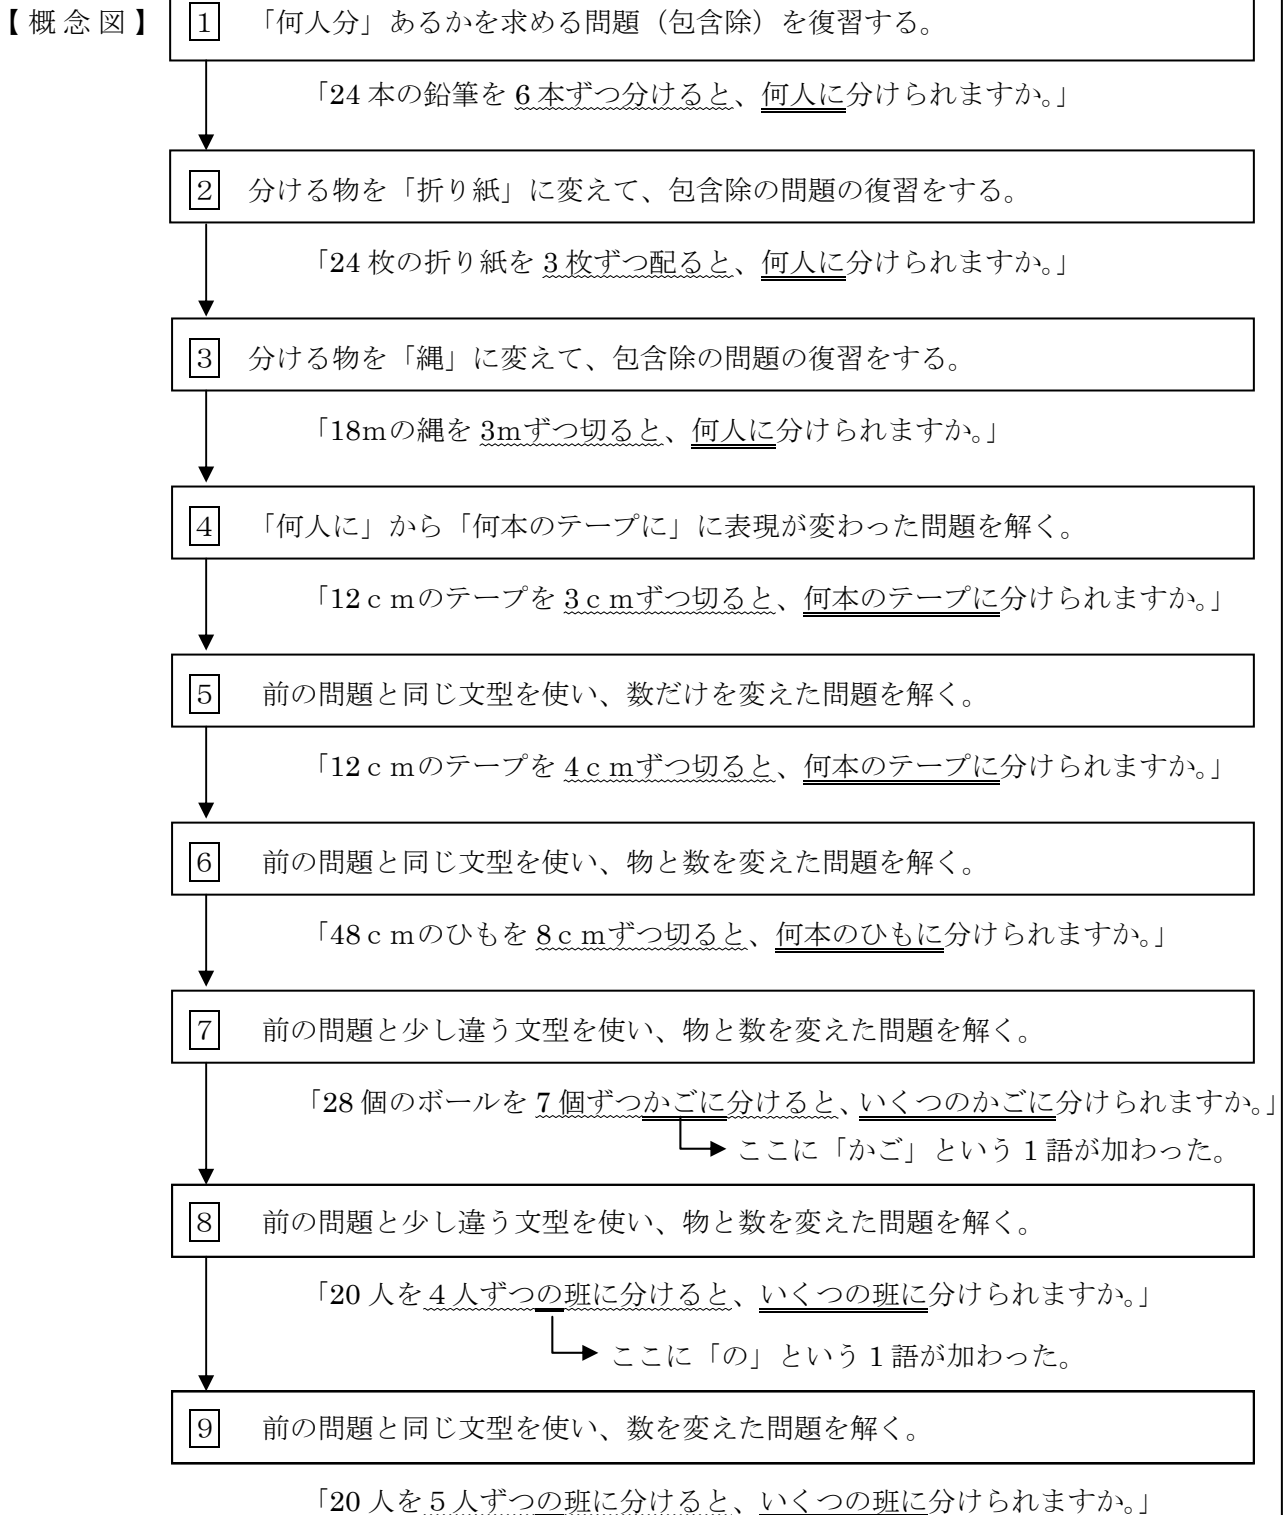 【概念図】 1 「何人分」あるかを求める問題（包含除）を復習する。
「24 本の鉛筆を 6 本ずつ分けると、何人に分けられますか。」
2 分ける物を「折り紙」に変えて、包含除の問題の復習をする。
「24 枚の折り紙を 3 枚ずつ配ると、何人に分けられますか。」
3 分ける物を「縄」に変えて、包含除の問題の復習をする。
「18mの縄を 3mずつ切ると、何人に分けられますか。」
4 「何人に」から「何本のテープに」に表現が変わった問題を解く。
「12ｃｍのテープを 3ｃｍずつ切ると、何本のテープに分けられますか。」
5 前の問題と同じ文型を使い、数だけを変えた問題を解く。
「12ｃｍのテープを 4ｃｍずつ切ると、何本のテープに分けられますか。」
6 前の問題と同じ文型を使い、物と数を変えた問題を解く。
「48ｃｍのひもを 8ｃｍずつ切ると、何本のひもに分けられますか。」
7 前の問題と少し違う文型を使い、物と数を変えた問題を解く。
「28 個のボールを 7 個ずつかごに分けると、いくつのかごに分けられますか。」
ここに「かご」という 1 語が加わった。
8 前の問題と少し違う文型を使い、物と数を変えた問題を解く。
「20 人を４人ずつの班に分けると、いくつの班に分けられますか。」
ここに「の」という 1 語が加わった。
9 前の問題と同じ文型を使い、数を変えた問題を解く。
「20 人を５人ずつの班に分けると、いくつの班に分けられますか。」